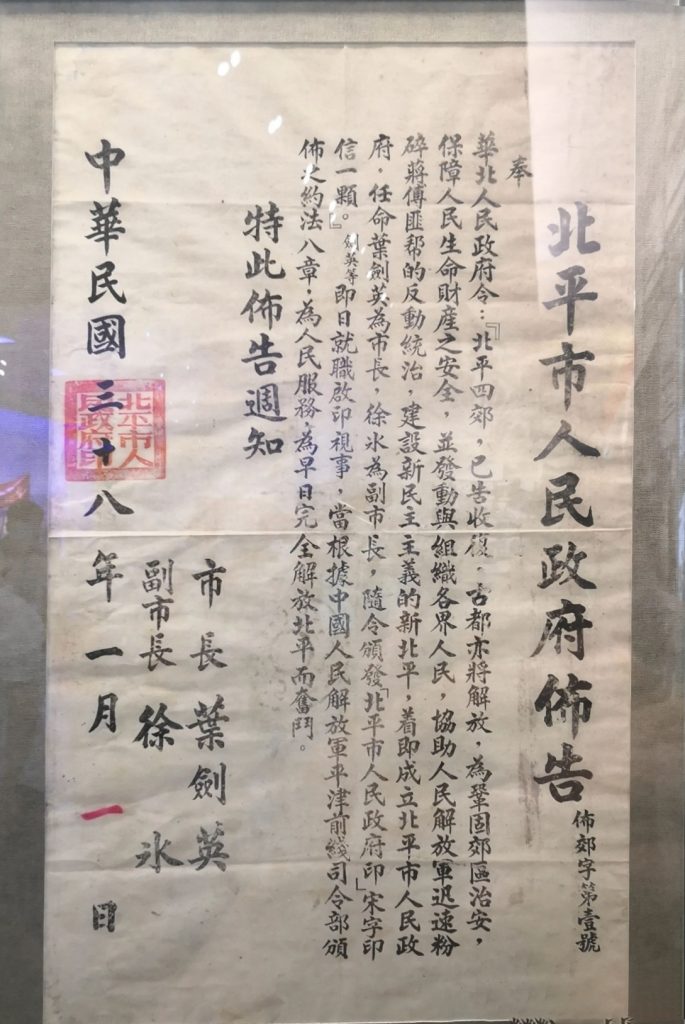 北平市人民政府佈告
佈郊字第壹號
奉
華北人民政府令：『北平四郊，已告收復。古都亦將解放，為鞏固郊區治安，
保障人民生命財産之安全，並發動與組織各界人民，協助人民解放軍迅速粉
碎蔣傅匪帮的反動統治，建設新民主主義的新北平，着即成立北平市人民政
府。任命葉劍英為市長，徐冰為副市長，隨令頒發「北平市人民政府印」宋字印
信一顆。』劍英等即日就職啟印視事，當根據中國人民解放軍平津前綫司令部頒
佈之約法八章，為人民服務，為早日完全解放北平而奮鬥。
特此佈告週知
市長 葉劍英
副市長 徐冰
中華民國三十八年一月一日
北平市人民政府印